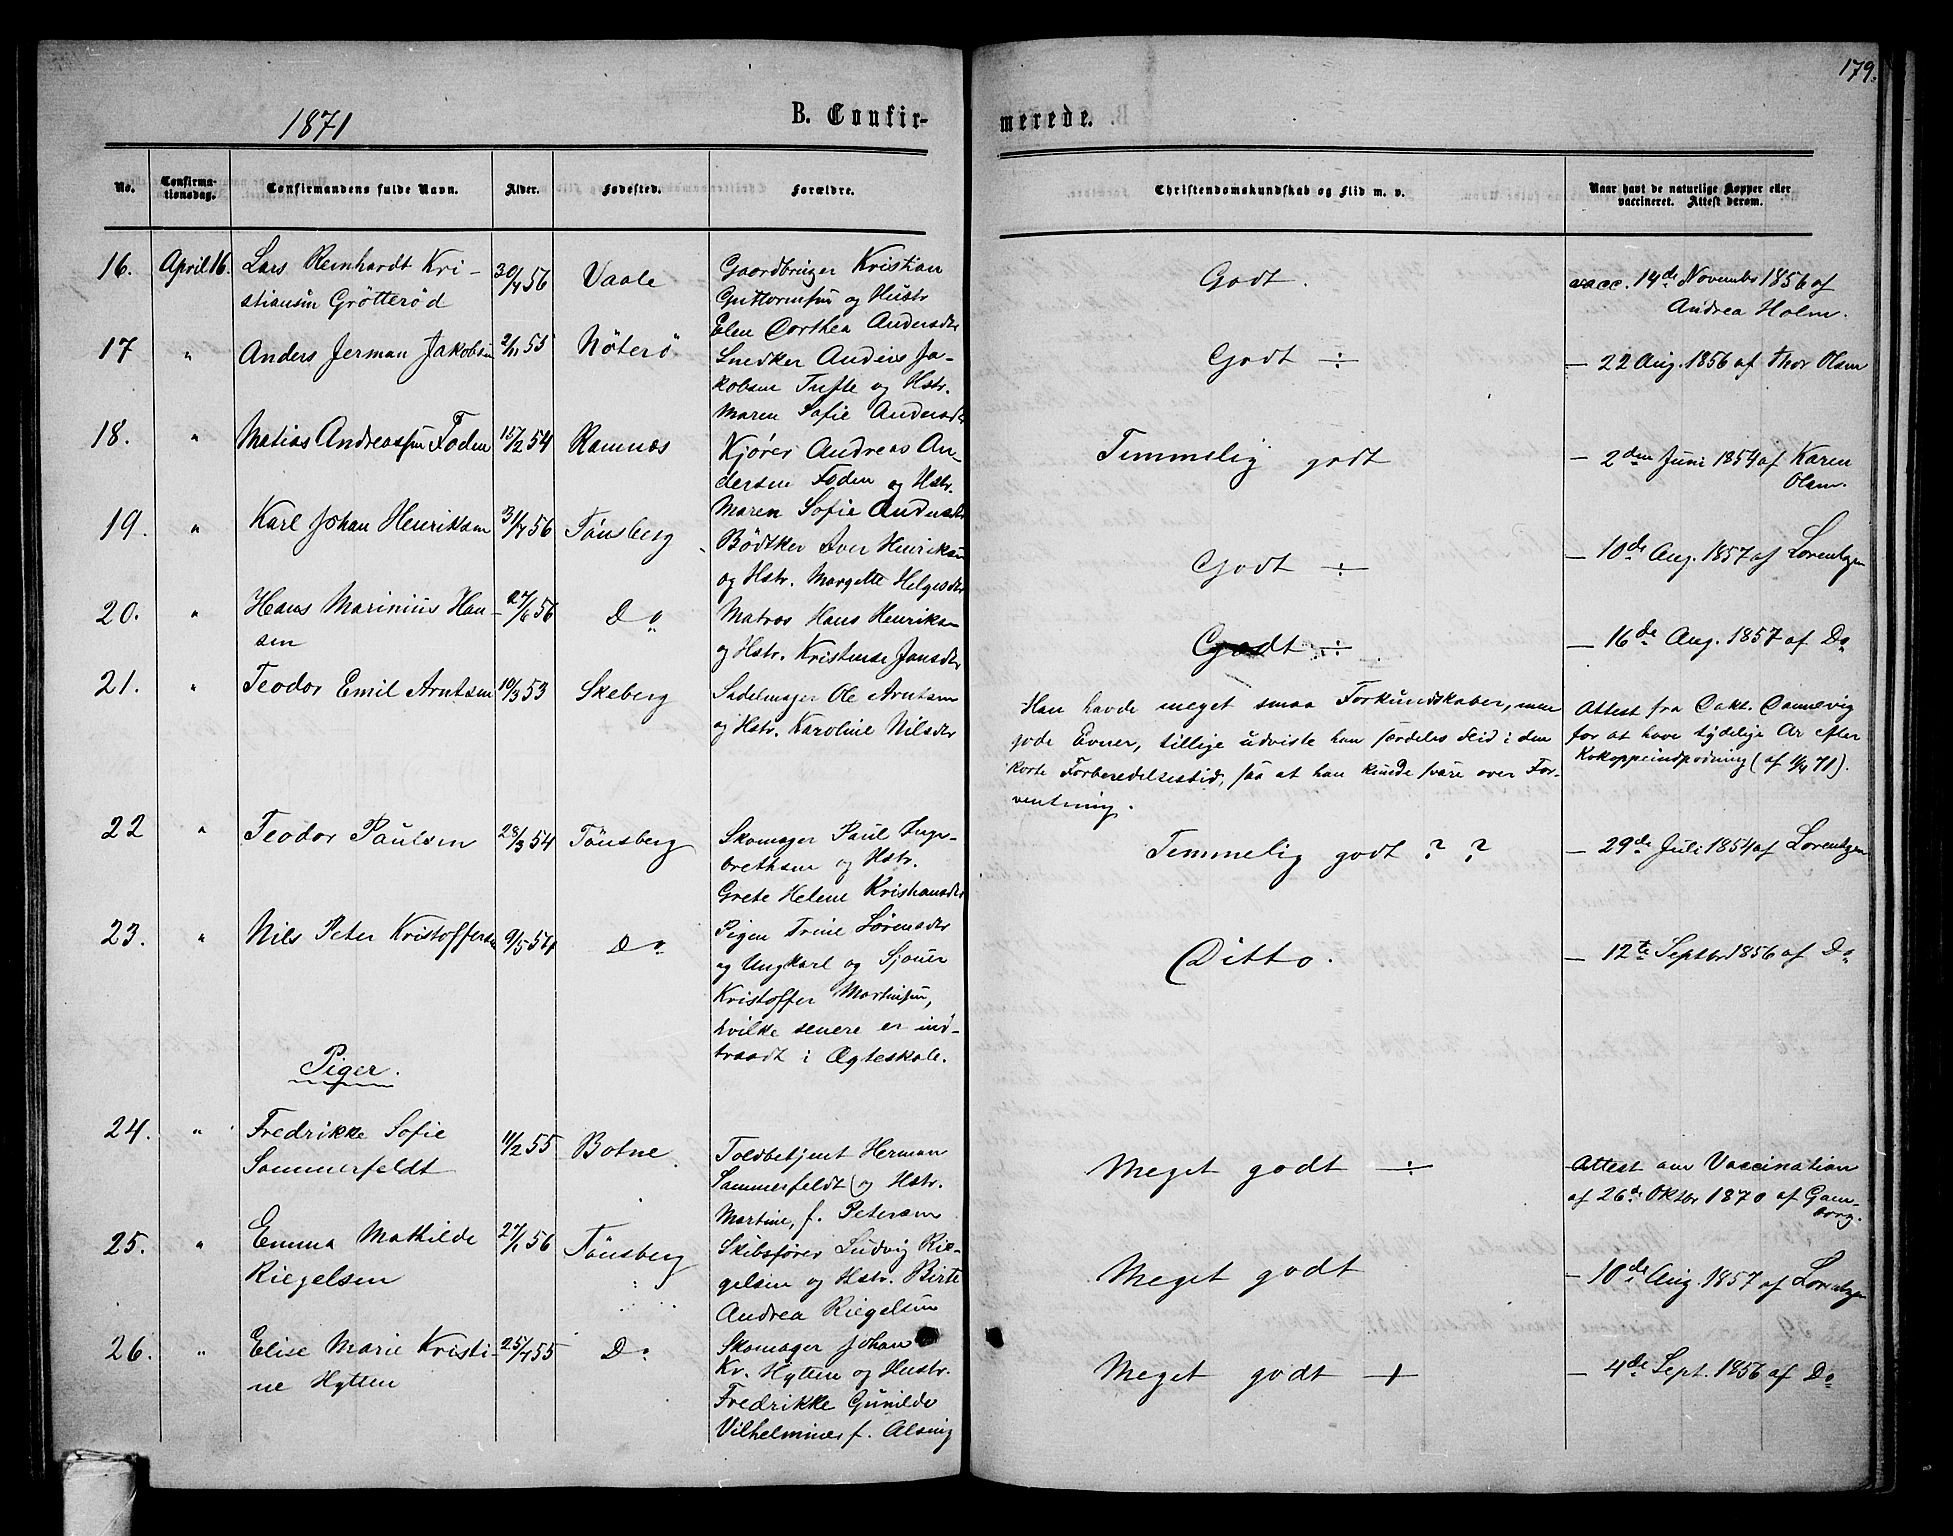 179.
1871
B. Confir-
merede.
No.
Confirma-
tionsdag.
Confirmandens fulde Navn.
Alder.
Fødested.
Forældre.
Christendomskundskab og Flid m. v.
Naar havt de naturlige Kopper eller
vaccineret. Attest derom.
16. April 16. Lars Reinhardt Kri-
stiansen Grötteröd
30/4 56
Vaale
Gaardbruger Kristian
Guttormsen og Hustr
Elen Dorthea Andersdtr
Godt.
vacc. 14de Novembr 1856 af
Andrea Holm.
17 " Anders Jerman Jakobsen
55
Nöterö
Snedker Anders Ja-
kobsen Tufte og Hstr.
Maren Sofie Andersdtr
Godt ÷
— 22 Aug. 1856 af Thor Olsen
18. " Matias Andreassen Foden
15/2 54
Ramnæs
Kjører Andreas An-
dersen Foden og Hstr.
Maren Sofie Andersdtr
Temmelig godt
— 2den Juni 1854 af Karen
Olsen.
19. " Karl Johan Henriksen
56
Tönsberg
Bödtker Iver Henriksen
og Hstr. Margette Helgesdtr
Godt ÷
— 10de Aug. 1857 af Lorentzen
20. " Hans Marinius Han-
sen
27/6 56
Do
Matros Hans Henriksen
og Hstr. Kristense Jonsdtr
Godt ÷
— 16de Aug. 1857 af Do
21. " Teodor Emil Arntsen
10/3 53
Skeberg
Sadelmager Ole Arntsen
og Hstr. Karoline Nilsdtr
Han havde meget smaa Forkundskaber, men
gode Evner, tillige udviste han særdeles Flid i den
korte Forberedelsestid, saa at han kunde svare over For-
ventning.
Attest fra Dokt. Dannevig
for at have tydelige Ar efter
Kokoppeindpodning (af 71).
22 " Teodor Paulsen
28/3 54
Tönsberg
Skomager Paul Inge-
brethsen og Hstr.
Grete Helene Kristiansdtr
Temmelig godt ? ?
— 29de Juli 1854 af Lorentzen
23. " Nils Peter Kristoffersen
9/5 54
Do
Pigen Trine Sörensdtr
og Ungkarl og Sjouer
Kristoffer Martinsen,
hvilke senere er ind-
traadt i Ægteskab.
Ditto.
— 12te Septbr 1856 af Do
Piger.
24. " Fredrikke Sofie
Sommerfeldt
11/2 55
Botne
Toldbetjent Herman
Sommerfeldt og Hstr.
Martine, f. Petersen
Meget godt ÷
Attest om Vaccination
af 26de Oktbr 1870 af Gam-
borg.
25. " Emma Mathilde
Riegelsen
27/1 56
Tönsberg
Skibsfører Ludvig Rie-
gelsen og Hstr. Birte
Andrea Riegelsen
Meget godt
— 10de Aug. 1857 af Lorentzen
26. " Elise Marie Kristi-
ne Hytten
25/4 55
Do
Skomager Johan
Kr. Hytten og Hustr.
Fredrikke Gunilde
Vilhelmine f. Alsing
Meget godt +
— 4de Sept. 1856 af Do